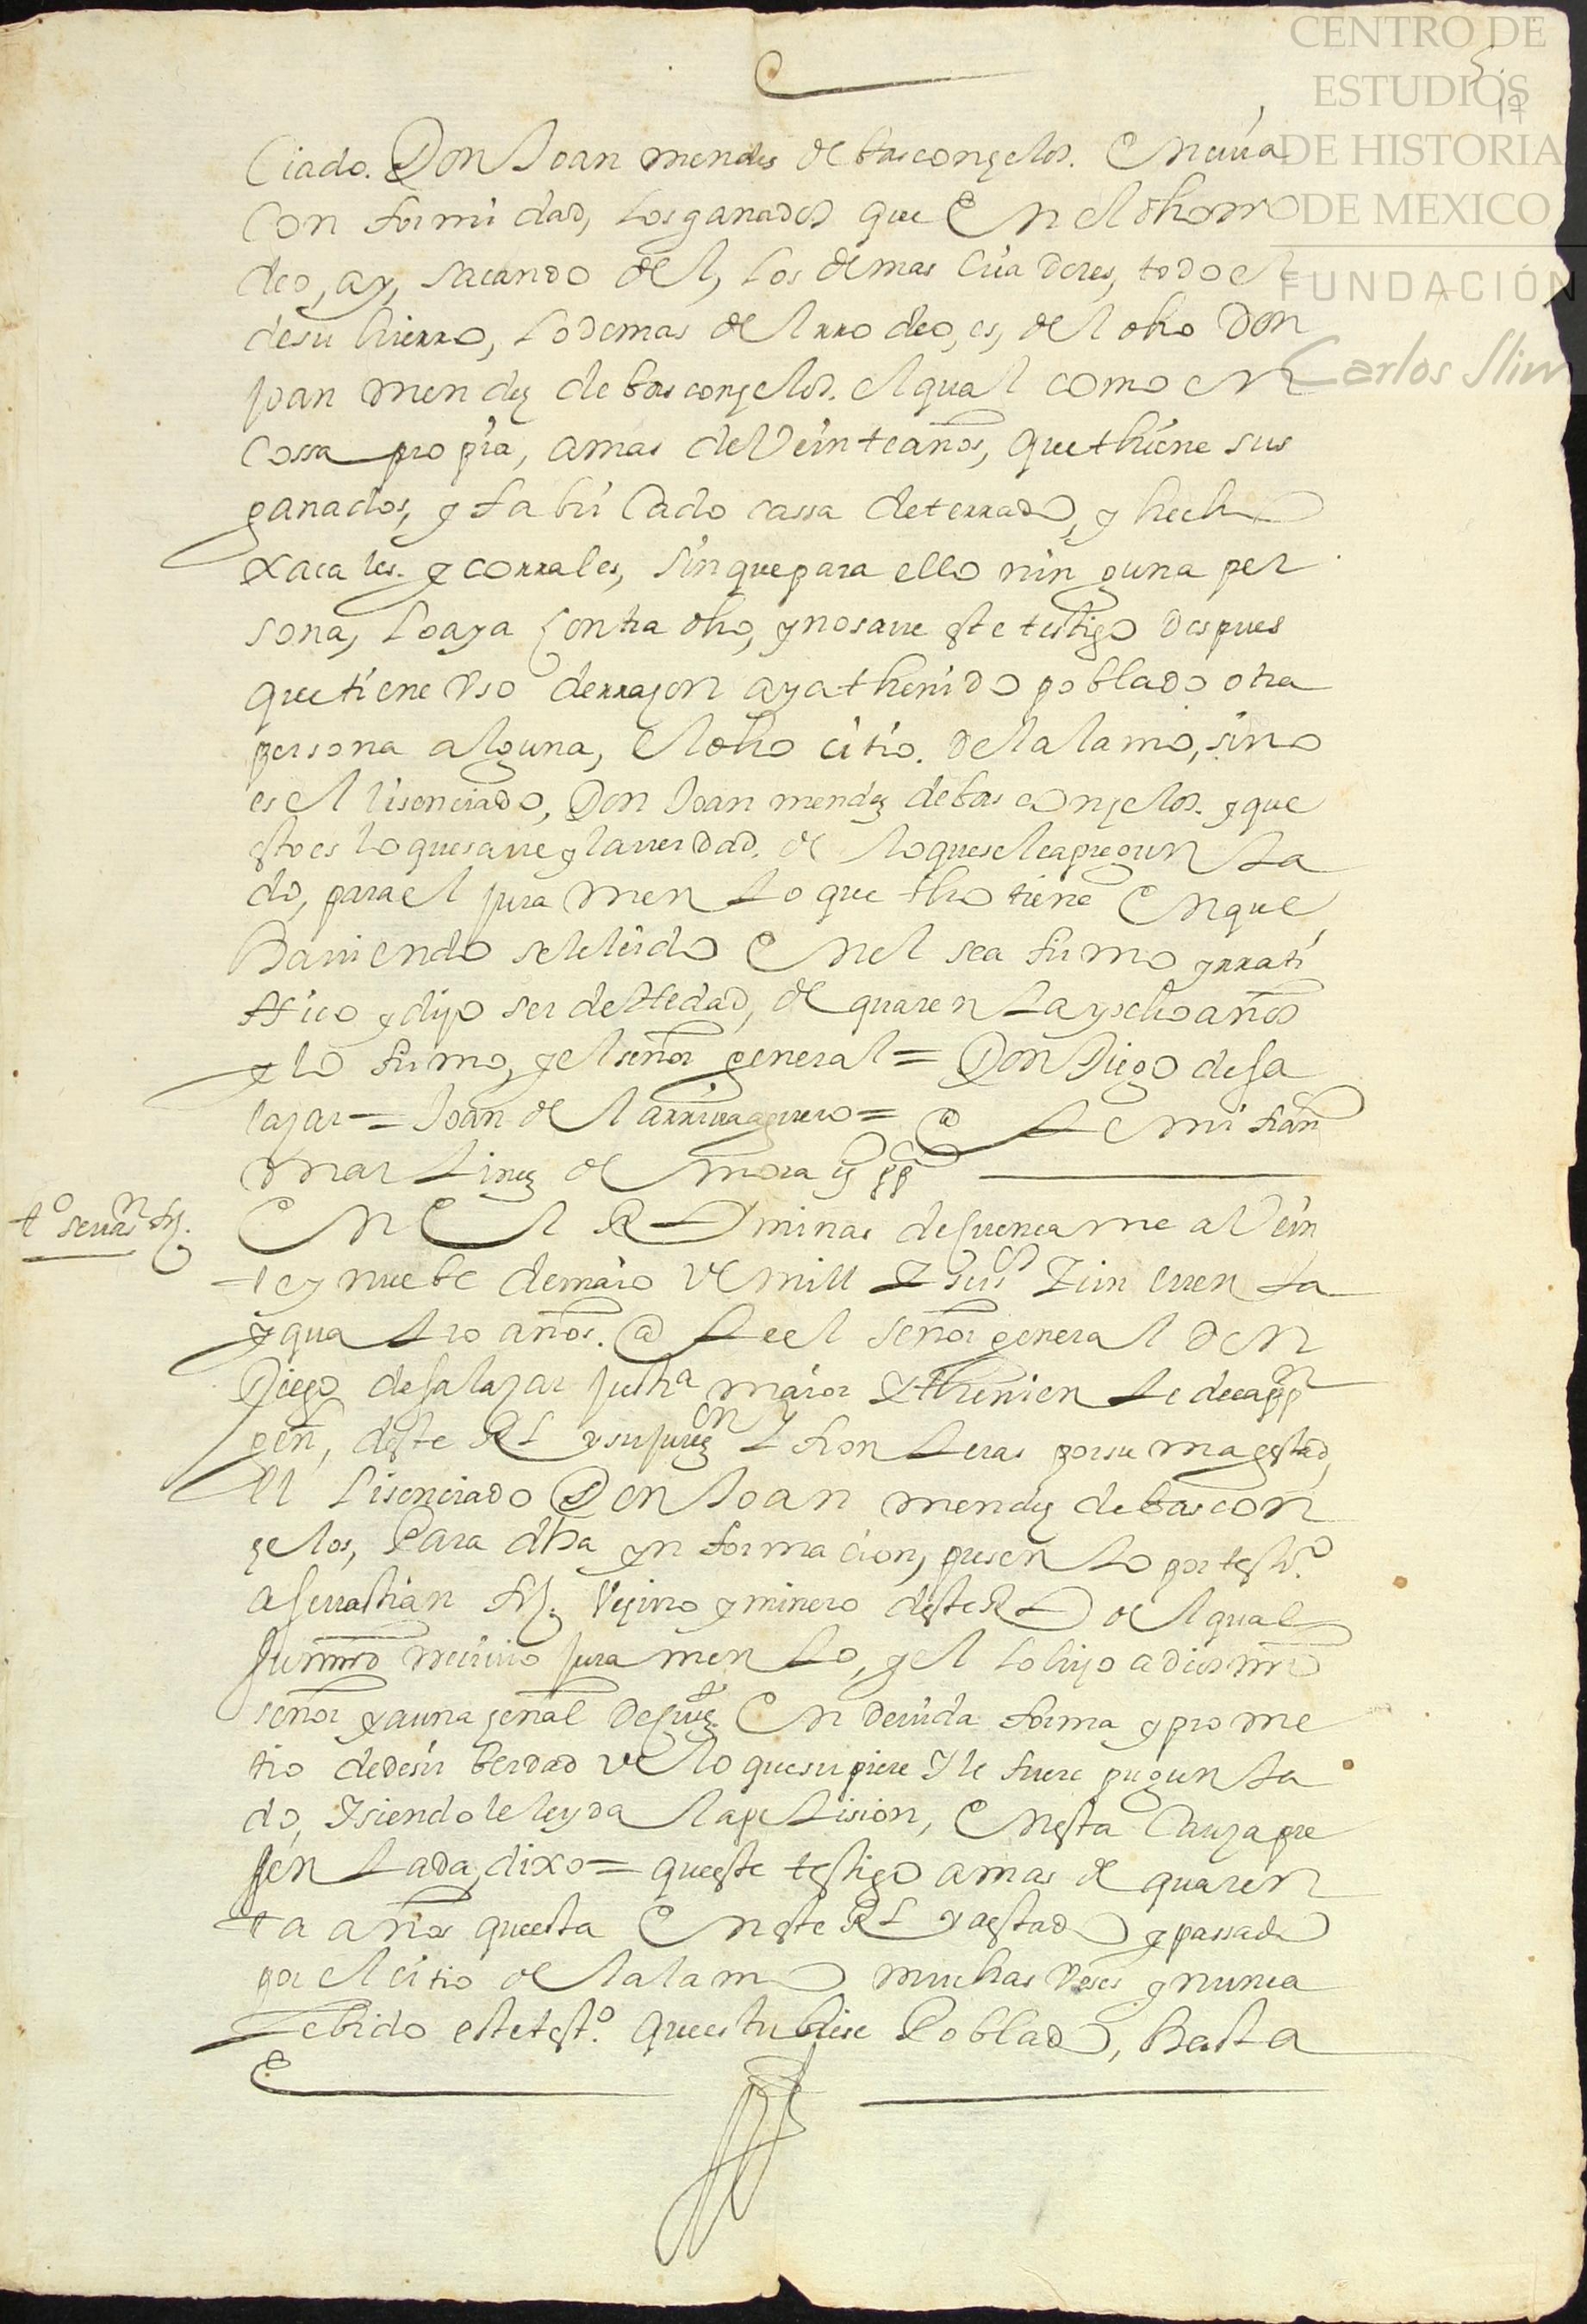 CENTRO DE
ESTUDIOS
DE HISTORIA
DE MEXICO
FUNDACIÓN
Carlos Slim
Ciado. Don Joan mendes de basconçelos. en cuia
Con formidad, los ganados que en el dho rro
deo, ay, sacando del, los demas criadores, todo el
de su hierro, lo demas del rrodeo, es, del dho Don
joan mendez de basconçelos. el qual como en
cossa propia, a mas de Veinte años, que thiene sus
ganados, y fabricado cassa de terrado, y hecho
xacales. y corrales, sin que para ello ninguna per
sona, lo aya contra dho, y no save este testigo despues
que tiene Vso de rrason aya thenido poblado otra
persona alguna, el dho citio. del alamo, sino
es el lisenciado, Don Joan mendez de basconçelos. y que
esto es lo que save y la verdad. de lo que se le a pregunta
do, para el juramento que fho tiene en que
haviendosele leido en el se a firmo y rrati
ffico y dijo ser de hedad, de quarenta y ocho años
y lo firmo, y el señor general = Don Diego de sa
laçar = Joan de larrinaguero = ante mi fran
martinez de mora
tº sevasn
en el Rl minas de cuencame a Vein
te y nuebe de maio de mill y seis çincuenta
y quatro años. ante el señor general don
Diego de salazar justa maior y theniente de capp
gen, deste Rl y su jurn y fronteras por su magestad,
el lisenciado Don Joan mendez de bascon
çelos, Para dha ynformacion, presento por testigo
a sevastian veçino y minero deste Rl del qual
su mrd recivio juramento, y el lo hiço a dios nro
señor y a una señal de cruz en devida forma y prome
tio de desir berdad de lo que supiere y le fuere pregunta
do, y siendole leyda la petision, en esta causa pre
sentada, dixo = que este testigo a mas de quaren
ta años que esta en este Rl y a estado y passado
por el citio del alamo muchas veses y nunca
a bido este testº. que estubiese Poblado, hasta